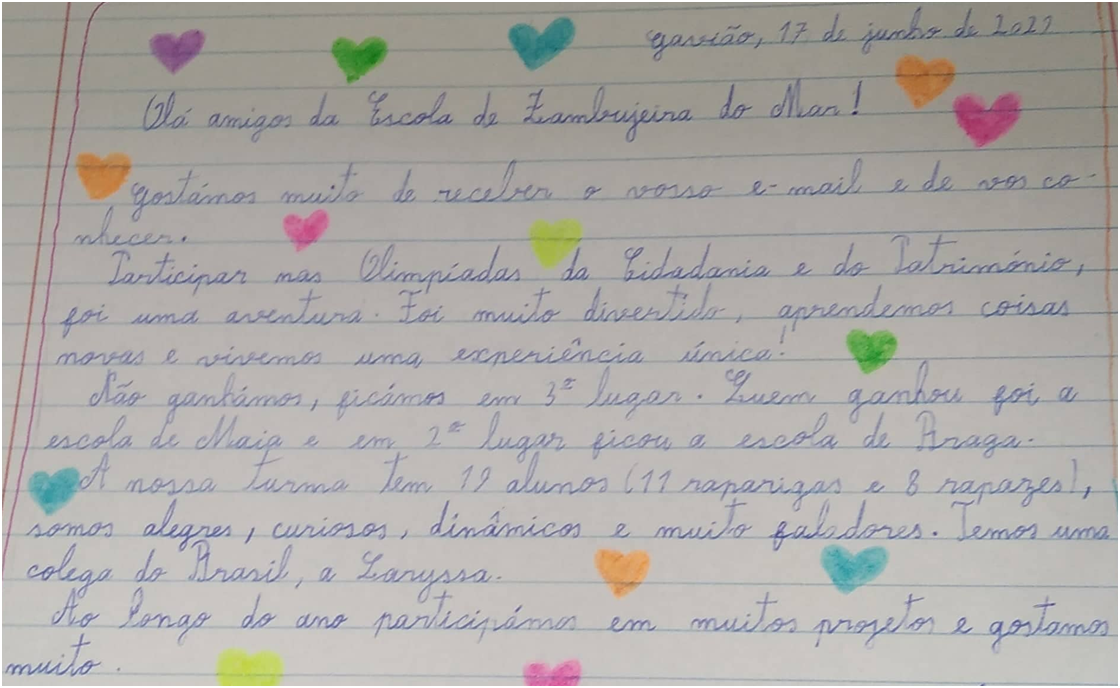 Gavião, 17 de junho de 2022
Olá amigos da Escola de Zambujeira do Mar!
Gostámos muito de receber o vosso e-mail e de vos co-
nhecer.
Participar nas Olimpíadas da Cidadania e do Património,
foi uma aventura. Foi muito divertido, aprendemos coisas
novas e vivemos uma experiência única!
Não ganhámos, ficámos em 3º lugar. Quem ganhou foi a
escola de Maia e em 2º lugar ficou a escola de Braga.
A nossa turma tem 19 alunos (11 raparigas e 8 rapazes),
somos alegres, curiosos, dinâmicos e muito faladores. Temos uma
colega do Brasil, a Laryssa.
Ao longo do ano participámos em muitos projetos e gostamos
muito.